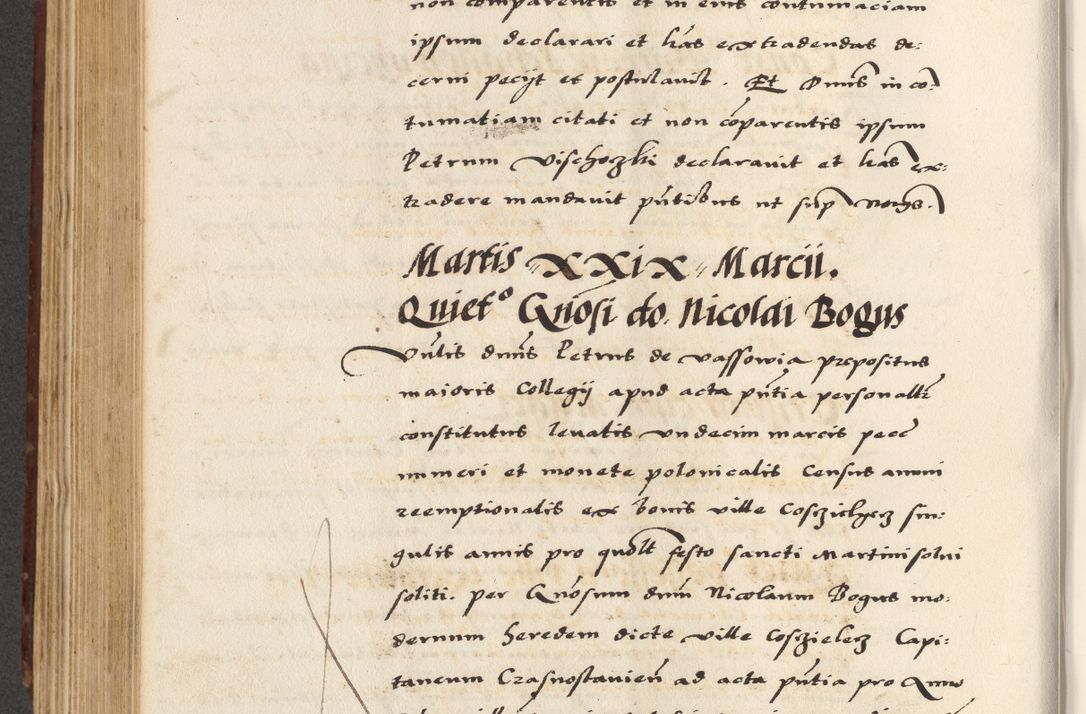 non comparentis et in eius contumaciam
ipsum declarari et l̃ras extradendas de:
cerni pecijt et postulavit. Et Dnus in cõ
tumatiam citati et non cõparentis ipsum
Petrum Vischoczki declaravit et l̃ras ex:
tradere mandavit pñtibus ut sup
Martis XXIX Marcii.
Quiet° Gñosi do. Nicolai Bogus
Vñlis dnns Petrus de Vassowia prepositus
maioris Collegij apud acta pñtia personalr
constitutus levatis undecim marcis pecc
numeri et monete polonicalis Census annui
reemptionalis ex bonis ville sin:
gulis annis pro quolt festo sancti Martini solvi
soliti. per Gñosum dnm Nicolaum Bogus mo:
dernum heredem dicte ville Coszielecz Capi:
taneum Crasnostavieñ ad acta pñtia pro Anno